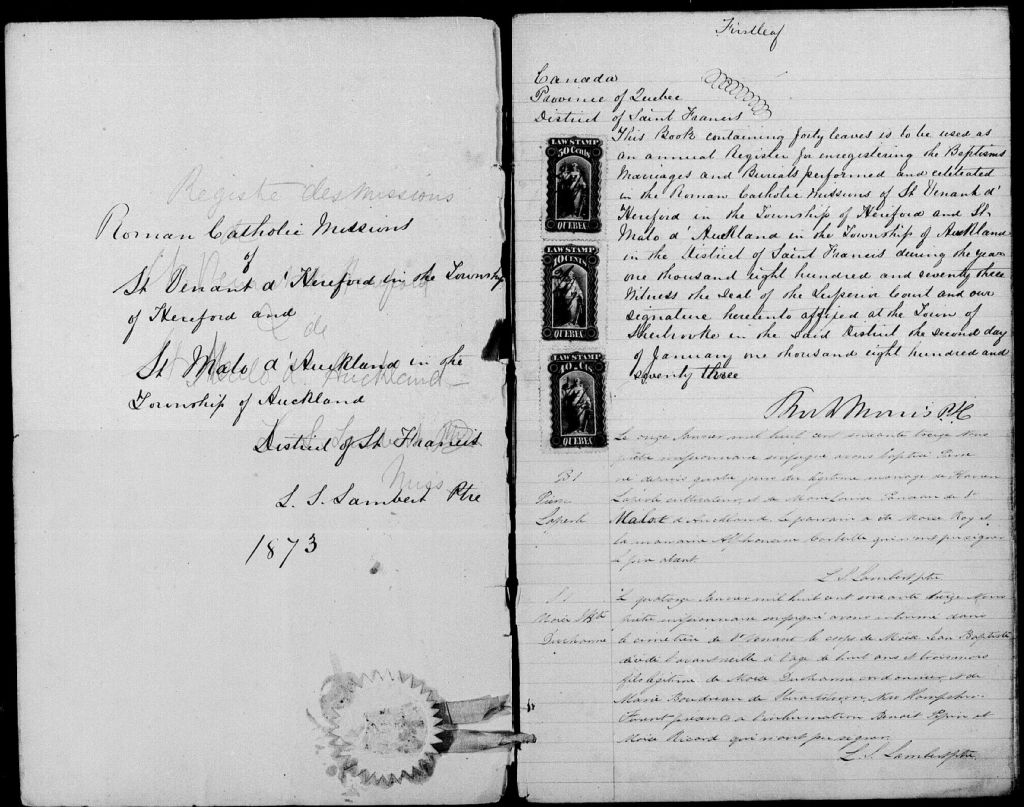 Registre des missions
Roman Catholic Missions
of
St Venant d'Hereford in the Township
of Hereford and
& de
St Malo d'Auckland in the
St Malo d'Auckland
Township of Auckland
District of St Francis
Miss
L. S. Lambert Ptre
1873
First leaf
Canada
Province of Quebec
District of Saint Francis
This Book containing forty leaves is to be used as
an annual Register for enregistering the Baptisms
Marriages and Burials performed and celebrated
in the Roman Catholic Missions of St Venant d'
Hereford in the Township of Hereford and St
Malo d'Auckland in the Township of Auckland
in the District of Saint Francis during the year
one thousand eight hundred and seventy three
Witness the Seal of the Superior Court and our
signature hereunto affixed at the Town of
Sherbrooke in the said District the second day
of January one thousand eight hundred and
seventy three
LAW STAMP
50 Cents
QUEBEC
LAW STAMP
10 CENTS
QUEBEC
LAW STAMP
10 Cts
QUEBEC
Morris
Le onze Janvier mil huit cent soixante treize nous
prêtre missionnaire soussigné avons baptisé
B 1
né depuis quatre jours du légitime mariage de
cultivateur, et de Marie Louise de St
Malo d'Auckland. Le parrain a été Moïse Roy et
la marraine qui n'ont pu signer
le père absent.
L. S. Lambert ptre
S. 1
Le quatorze Janvier mil huit cent soixante treize Nous
prêtre missionnaire soussigné avons inhumé dans
le cimetière de St Venant le corps de Moïse Jean Baptiste
décédé l'avant veille à l'âge de huit ans et trois mois
fils légitime de Moïse Duchesne cordonnier, et de
Marie Boudreau de New Hampshire.
Furent présents à l'inhumation Benoit Pepin et
Moïse Ricard qui n'ont pu signer.
L. S. Lambert ptre